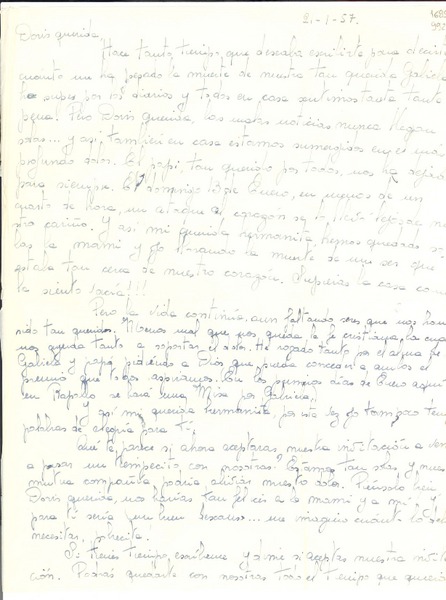 21-1-57.
Doris querida,
Hace tanto tiempo que deseaba escribirte para decirte
cuanto me ha pesado la muerte de nuestra tan querida Gabriela
lo supe por los diarios y todos en casa sentimos tanta tanta
pena! Pero Doris querida, las malas noticias nunca llegan
solas... y así también en casa estamos sumergidas en el más
profundo dolor. El papi, tan querido por todos, nos ha dejado
para siempre. El domingo 13 de Enero, en menos de un
cuarto de hora, un ataque al corazón se lo llevó lejos de nues
tro cariño. Y así mi querida hermanita, hemos quedado so
las la mami y yo llorando la muerte de un ser que
estaba tan cerca de nuestro corazón. Supieras la casa como
la siento vacía!!!
Pero la vida continúa, aun faltando seres que nos han
sido tan queridos. Menos mal que nos queda la fe cristiana, la cual
nos ayuda tanto a soportar el dolor. He rogado tanto por el alma de
Gabriela y papi pidiendo a Dios que pueda conceder a ambos el
premio que todos aspiramos. En los primeros días de Enero aquí
en Rapallo se hará una Misa por Gabriela.
Y así mi querida hermanita, por esta vez yo tampoco tengo
palabras de alegría para ti.
Qué te parece si ahora aceptaras nuestra invitación a venir
a pasar un tiempecito con nosotras? Estamos tan solas, y nues
mutua compañía, podría aliviar nuestro dolor. Piénsalo bien
Doris querida, nos harías tan felices a la mami y a mi y
para ti sería un buen descanso... me imagino cuanto lo debes
necesitar, pobrecita.
Si tienes tiempo, escríbeme y dime si aceptas nuestra invita
ción. Podrás quedarte con nosotras todo el tiempo que quieras